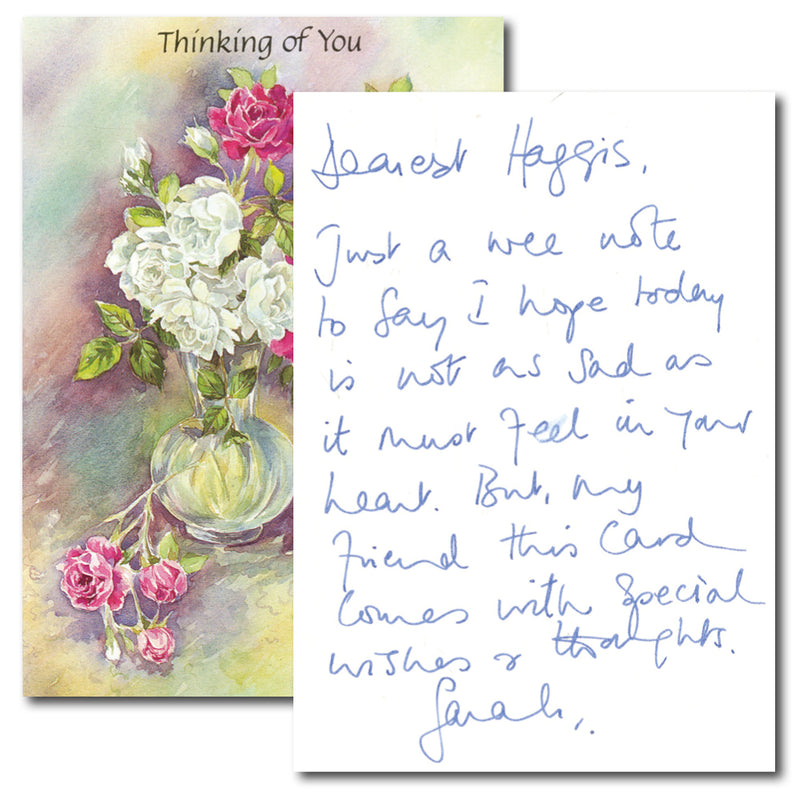 Thinking of You
Dearest Haggis,
Just a wee note
to say I hope today
is not as sad as
it must feel in your
heart. But, my
friend this Card
comes with special
wishes & thoughts.
Sarah,.